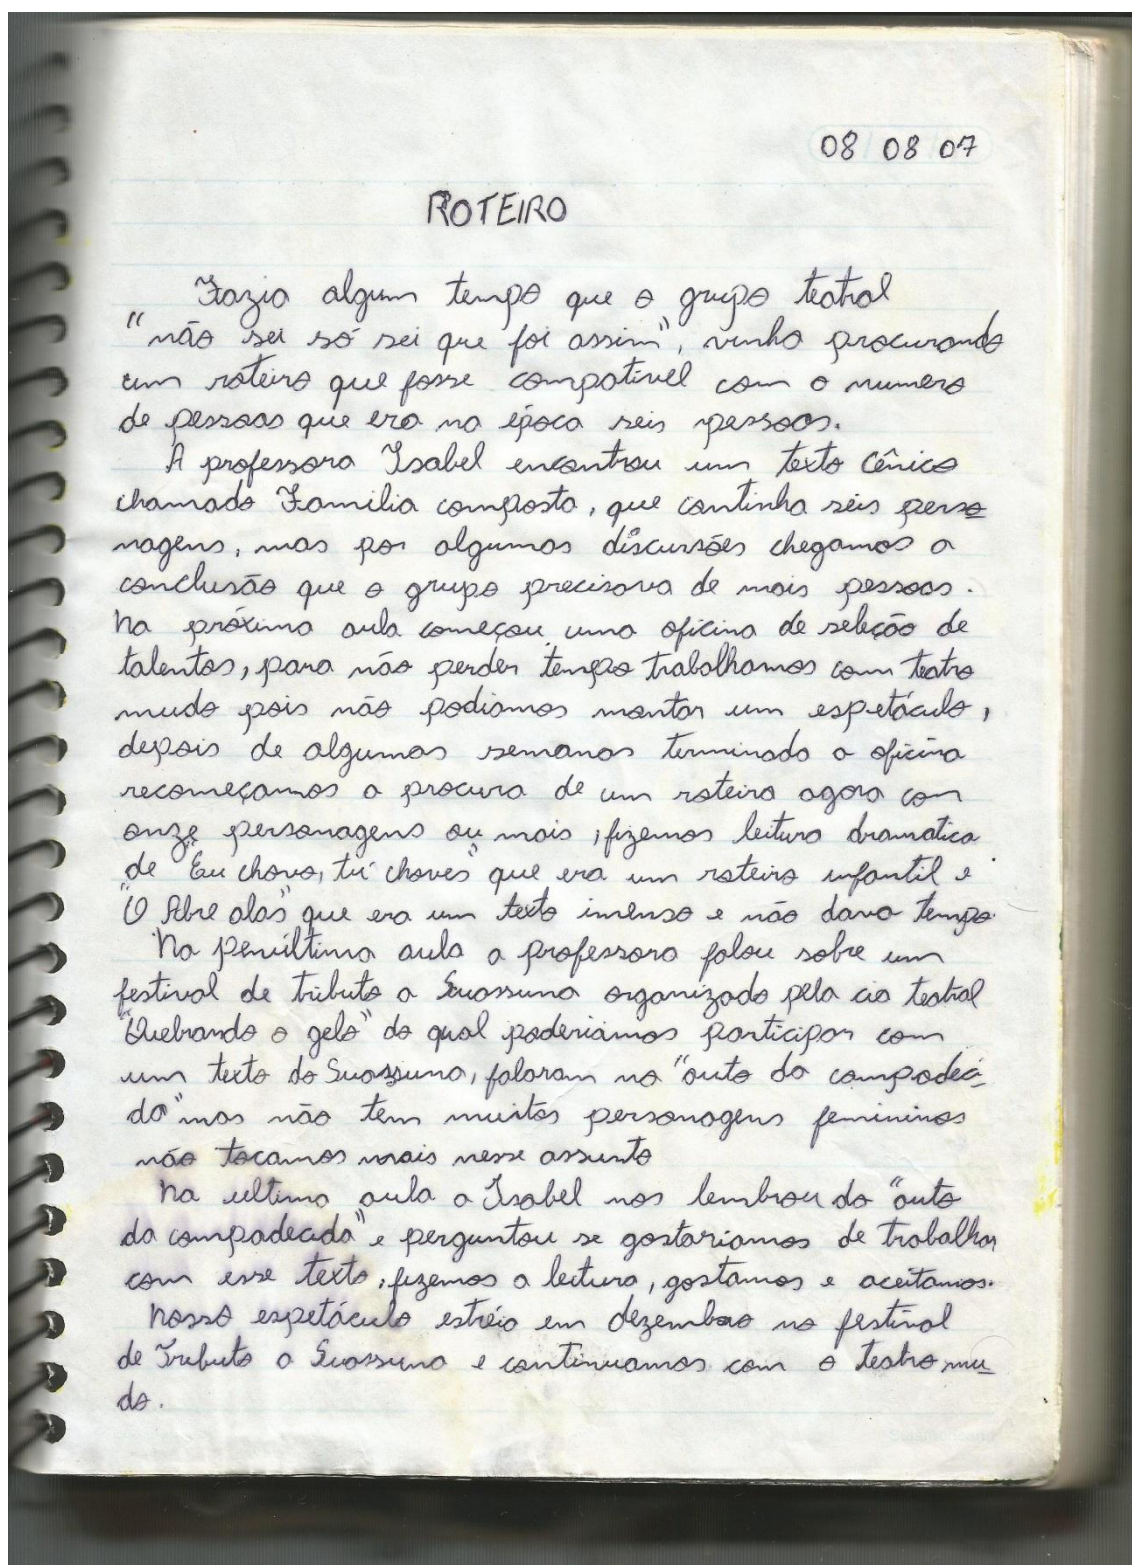 08 08 07
ROTEIRO
Fazia algum tempo que o grupo teatral
"não sei só sei que foi assim", vinha procurando
um roteiro que fosse compativel com o numero
de pessoas que era na época seis pessoas.
A professora Isabel encontrou um texto Cênico
chamado Familia composta, que continha seis perso
nagens, mas por algumas discursões chegamos a
conclusão que o grupo precisava de mais pessoas.
Na próxima aula começou uma oficina de seleção de
talentos, para não perder tempo trabalhamos com teatro
mudo pois não podiamos montar um espetáculo,
depois de algumas semanas terminado a oficina
recomeçamos a procura de um roteiro agora com
onze personagens ou mais, fizemos leitura dramatica
de "Eu chovo, tu choves" que era um roteiro infantil e
"O Abre alas" que era um texto imenso e não dava tempo
Na penúltima aula a professora falou sobre um
festival de tributo a Suassuna organizado pela cia teatral
"Quebrando o gelo" do qual poderiamos participar com
um texto do Suassuna, falaram no "auto da compadeci-
da" mas não tem muitos personagens femininos
não tocamos mais nesse assunto
Na ultima aula a Isabel nos lembrou do "auto
da compadecida" e perguntou se gostariamos de trabalhar
com esse texto, fizemos a leitura, gostamos e aceitamos.
Nosso espetáculo estréia em dezembro no festival
de Tributo a Suassuna e continuamos com o teatro mu
do.